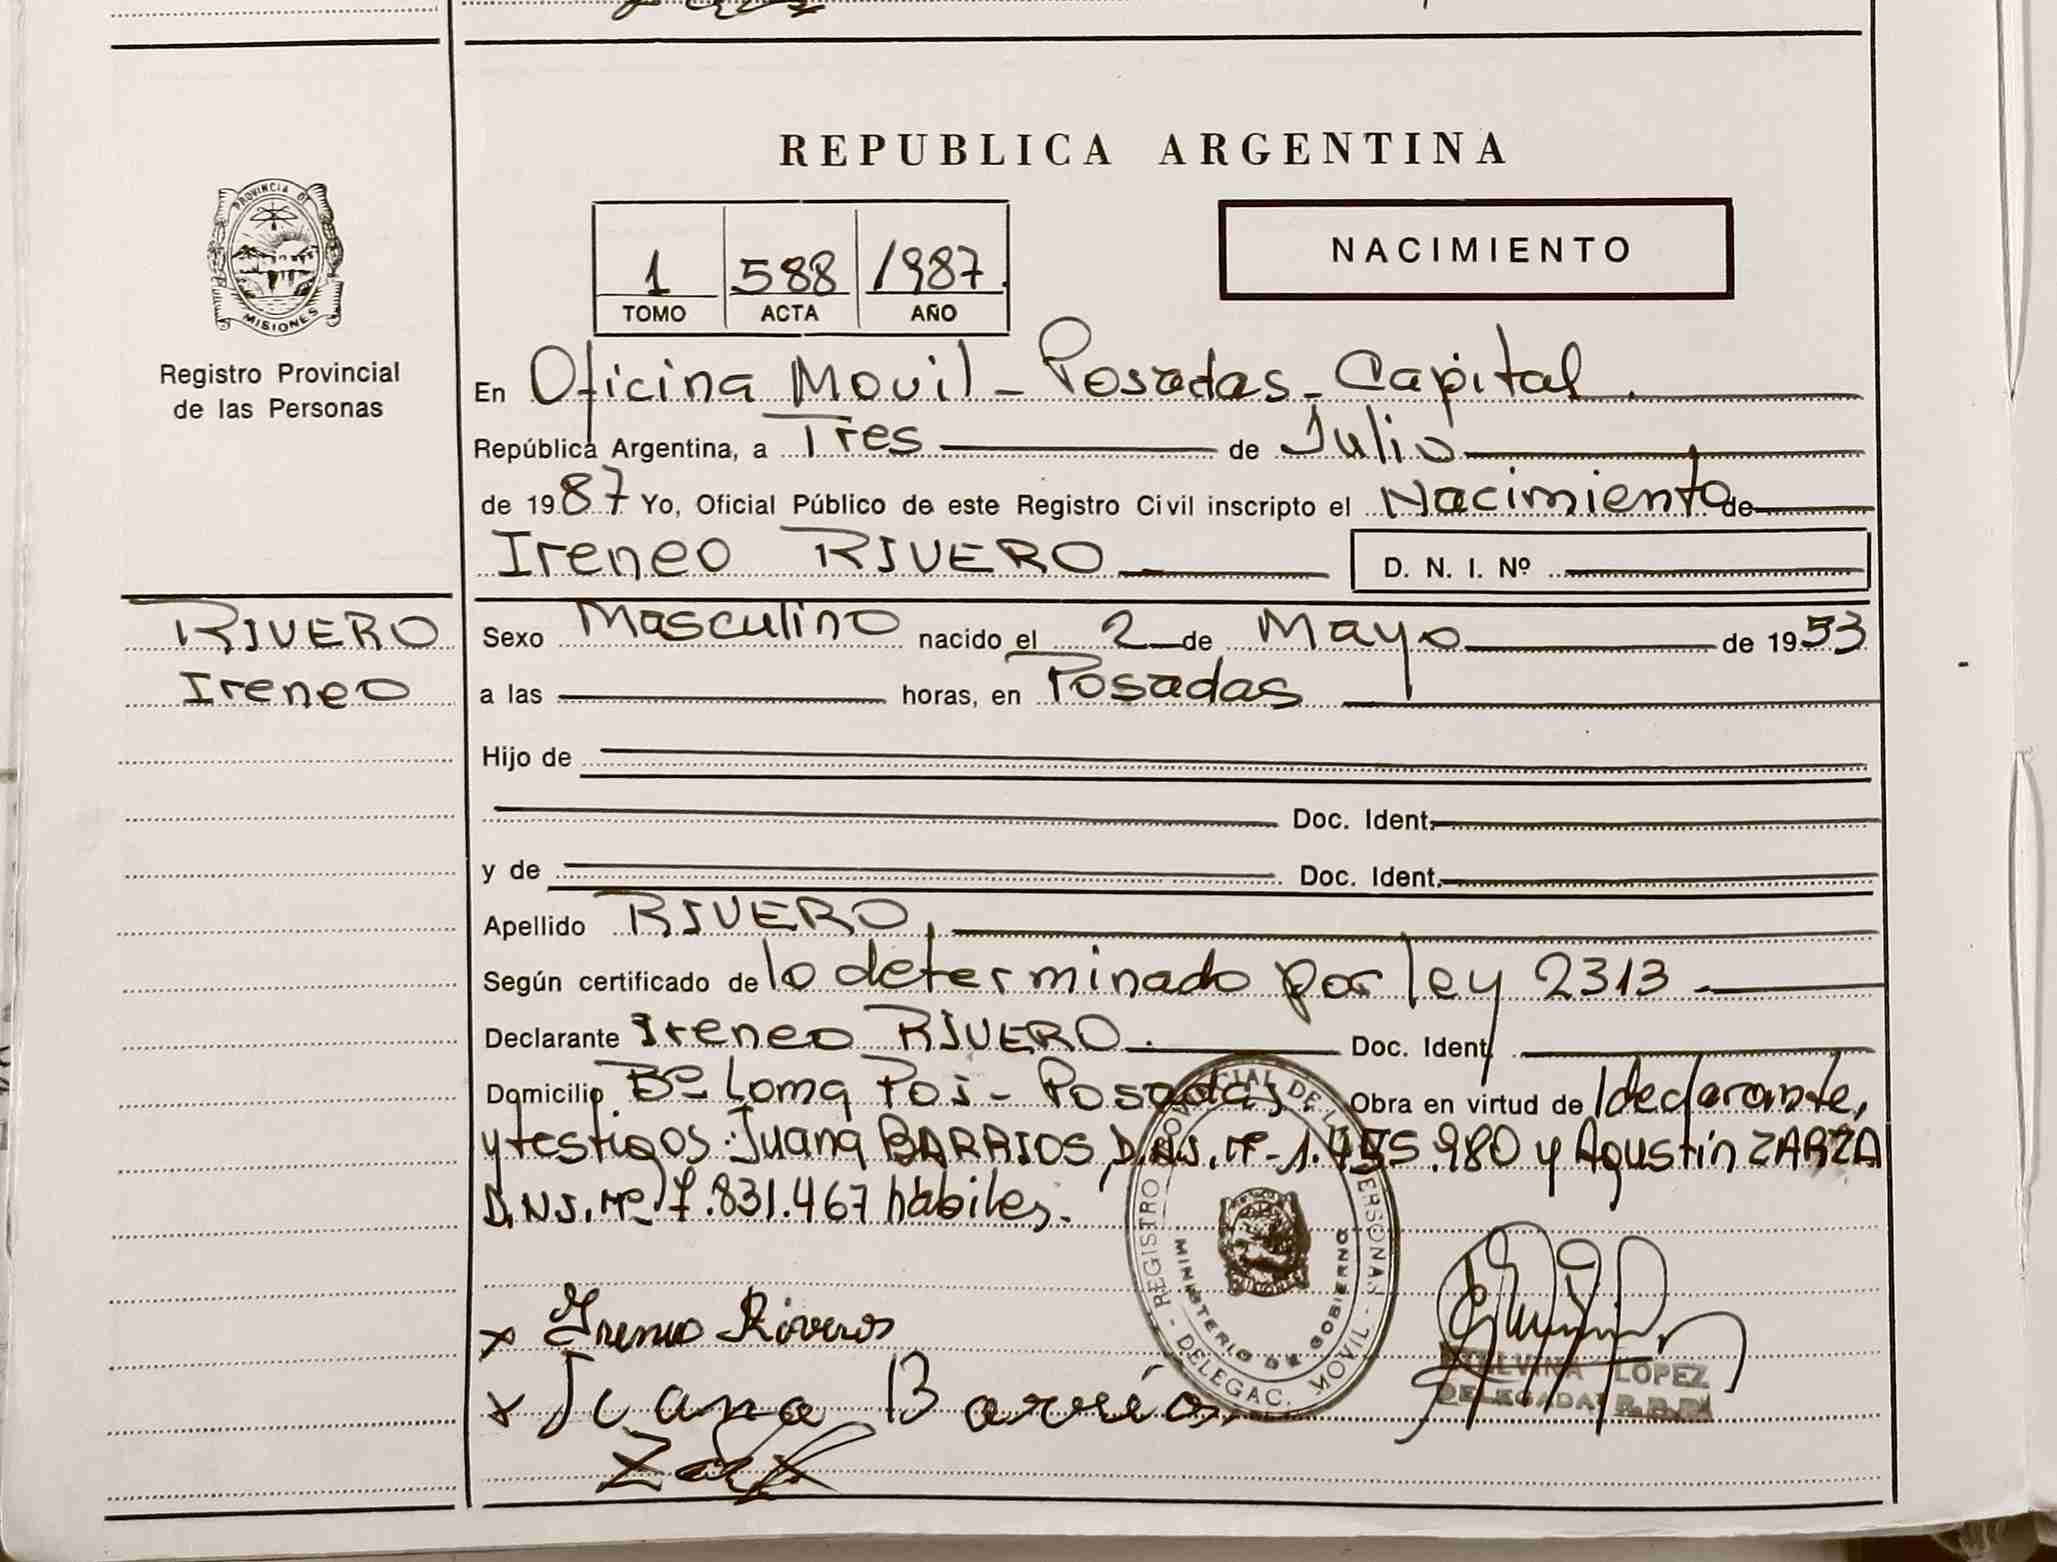 REPUBLICA ARGENTINA
PROVINCIA DE
MISIONES
Registro Provincial
de las Personas
1 588 1987
TOMO ACTA AÑO
NACIMIENTO
En Oficina Movil - Posadas - Capital.
República Argentina, a Tres de Julio
de 1987 Yo, Oficial Público de este Registro Civil inscripto el Nacimiento de
Ireneo RIVERO D. N. I. Nº
RIVERO
Ireneo
Sexo Masculino nacido el 2 de Mayo de 1953
a las horas, en Posadas
Hijo de
Doc. Ident.
y de Doc. Ident.
Apellido RIVERO.
Según certificado de lo determinado por ley 2313
Declarante Ireneo RIVERO. Doc. Ident.
Domicilio Bº Loma Poi - Posadas. Obra en virtud de declarante,
y testigos: Juana BARRIOS, D.N.I. Nº 1.455.980 y Agustín ZARZA
D.N.I. Nº 7.831.467 hábiles.
x Ireneo Riveros
x Juana Barrios
REGISTRO PROVINCIAL DE LAS PERSONAS - DELEGAC. MOVIL -
MINISTERIO DE GOBIERNO
LOPEZ
DELEGADA R.P.P.